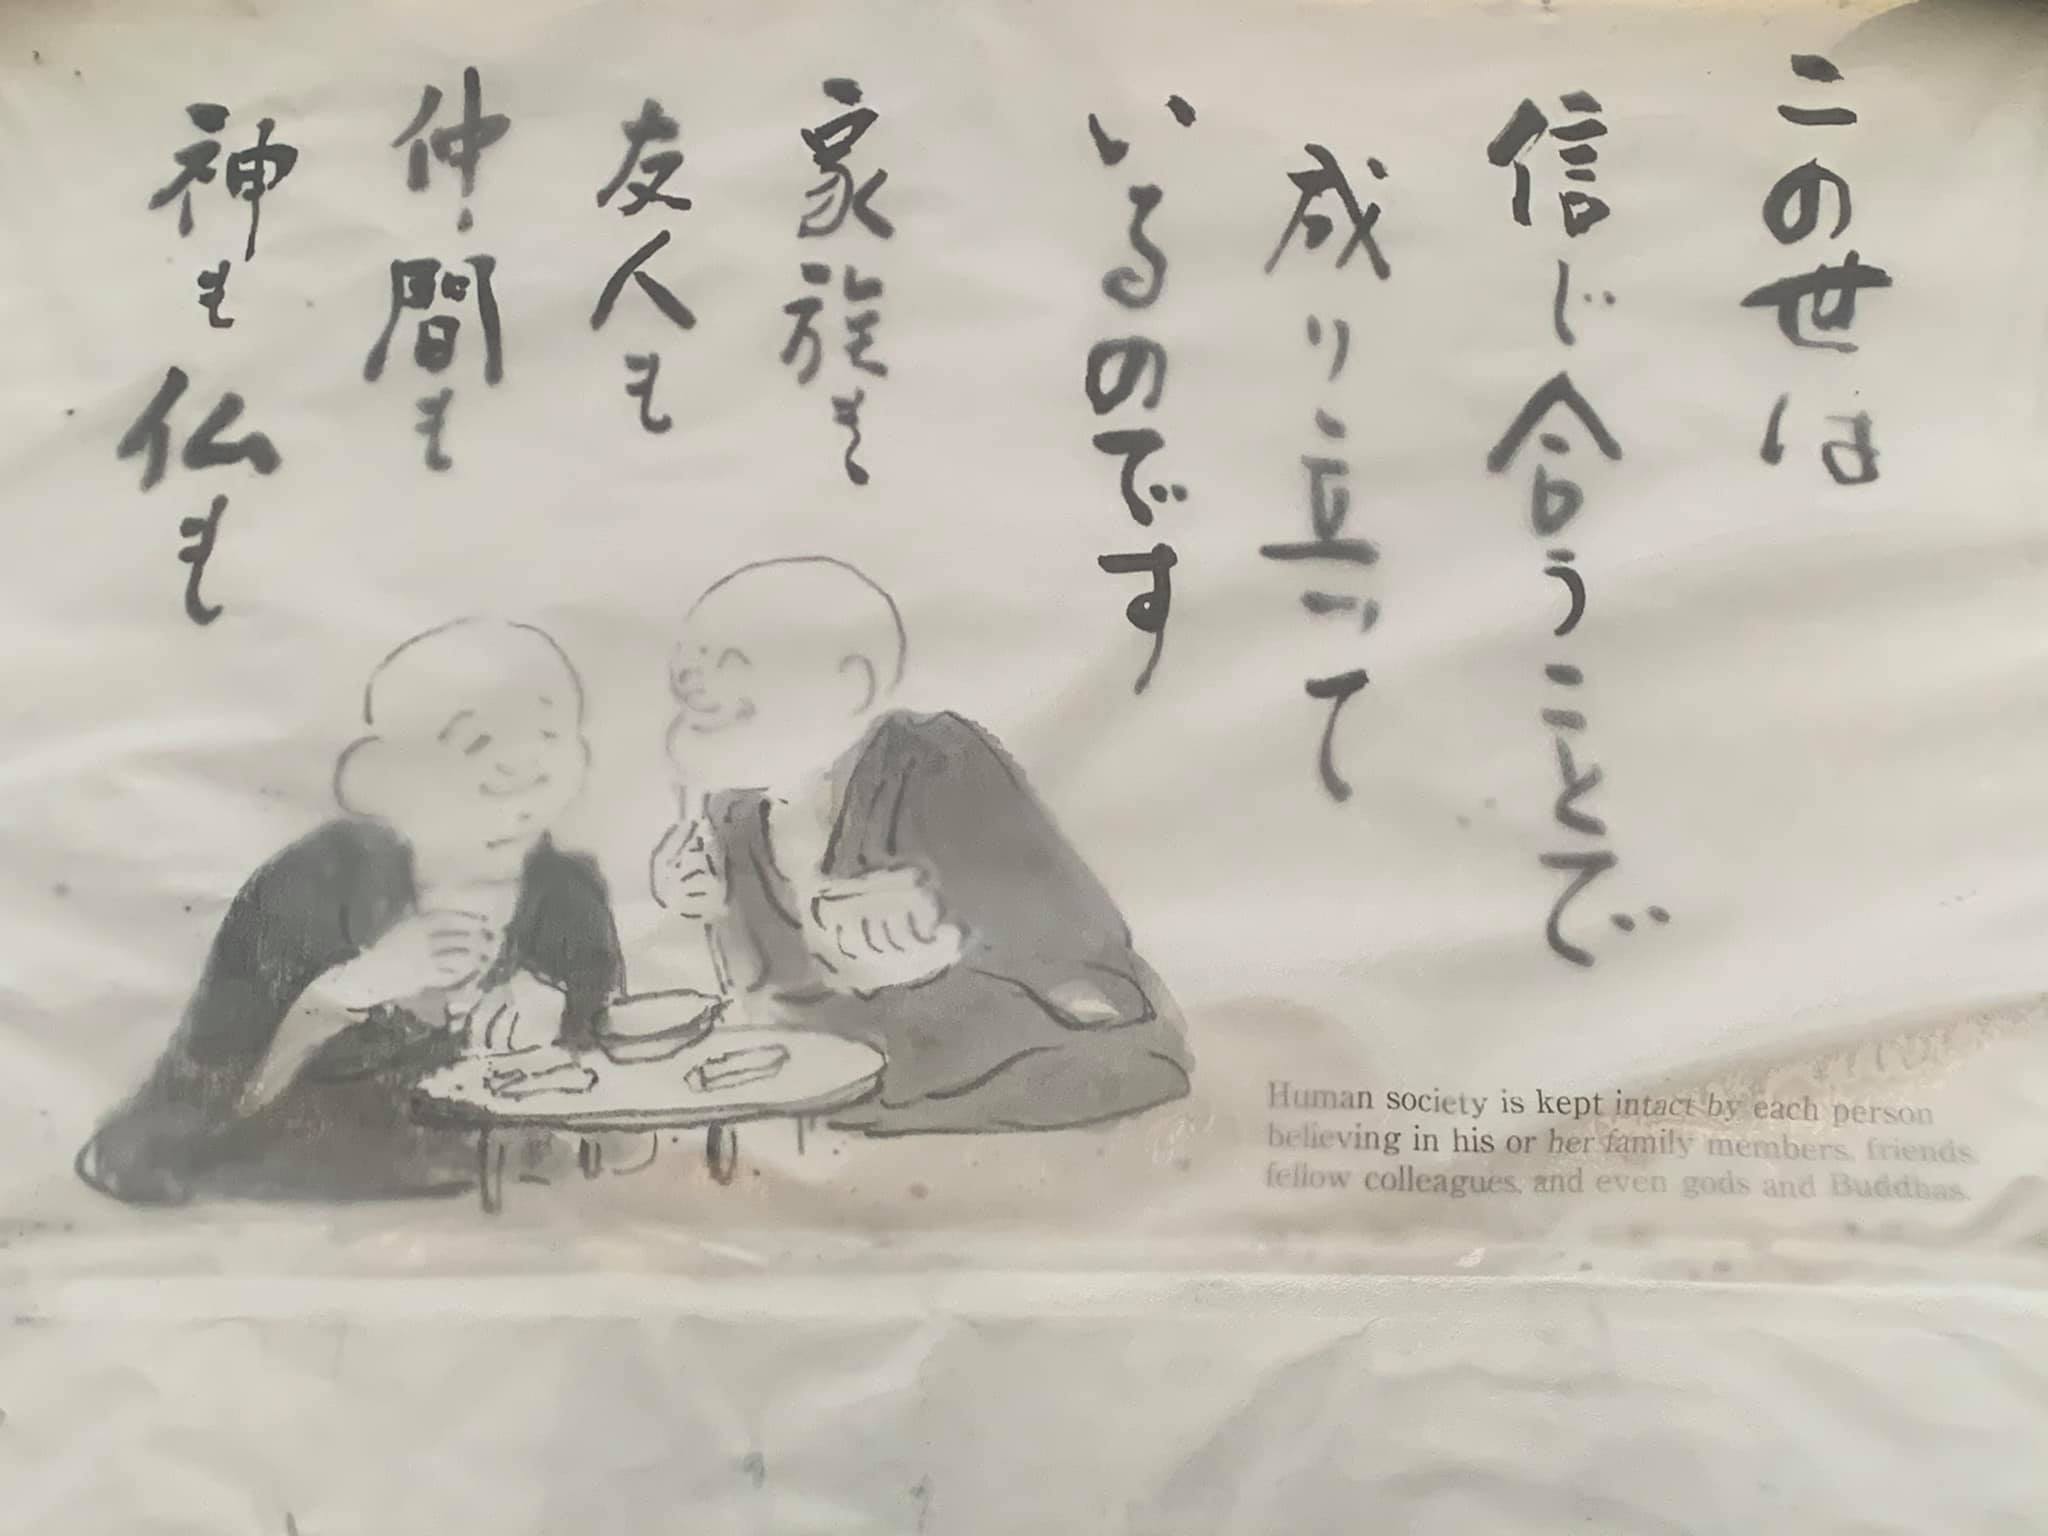 この世は
信じ合うことで
成り立って
いるのです
家族も
友人も
仲間も
神も仏も
Human society is kept intact by each person
believing in his or her family members, friends,
fellow colleagues, and even gods and Buddhas.